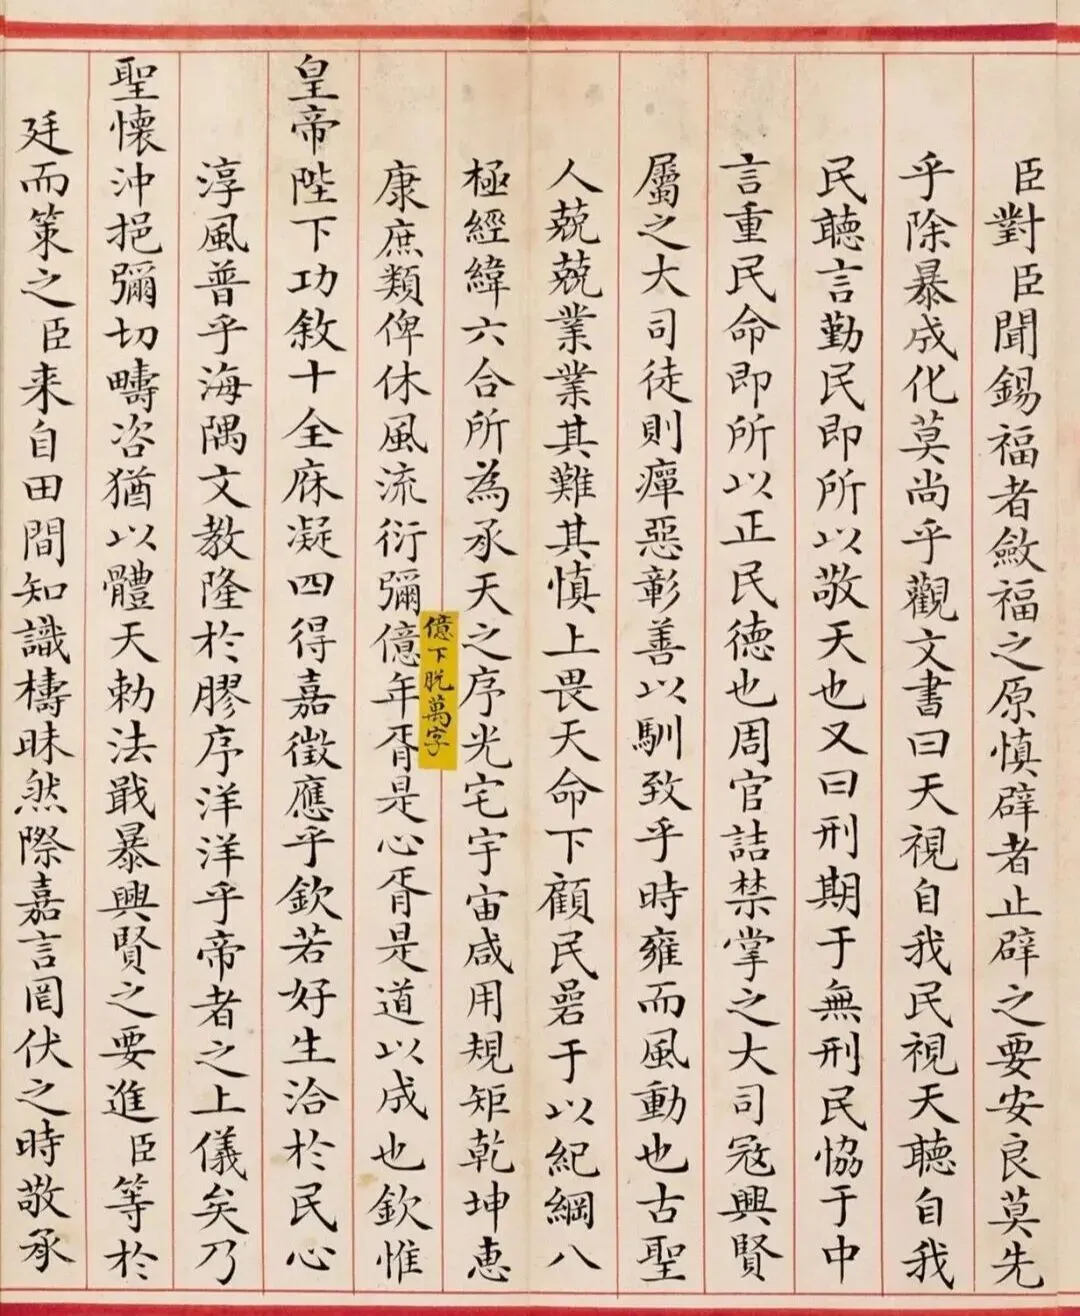 臣對臣聞錫福者斂福之原慎辟者止辟之要安良莫先
乎除暴成化莫尚乎觀文書曰天視自我民視天聽自我
民聽言勤民即所以敬天也又曰刑期于無刑民協于中
言重民命即所以正民德也周官詰禁掌之大司寇興賢
屬之大司徒則癉惡彰善以馴致乎時雍而風動也古聖
人兢兢業業其難其慎上畏天命下顧民碞于以紀綱八
極經緯六合所為承天之序光宅宇宙咸用規矩乾坤惠
億下脫萬字
康庶類俾休風流衍彌億年胥是心胥是道以成也欽惟
皇帝陛下功敘十全庥凝四得嘉徵應乎欽若好生洽於民心
淳風普乎海隅文教隆於膠序洋洋乎帝者之上儀矣乃
聖懷沖挹彌切疇咨猶以體天勑法戢暴興賢之要進臣等於
廷而策之臣来自田間知識檮昧然際嘉言罔伏之時敬承